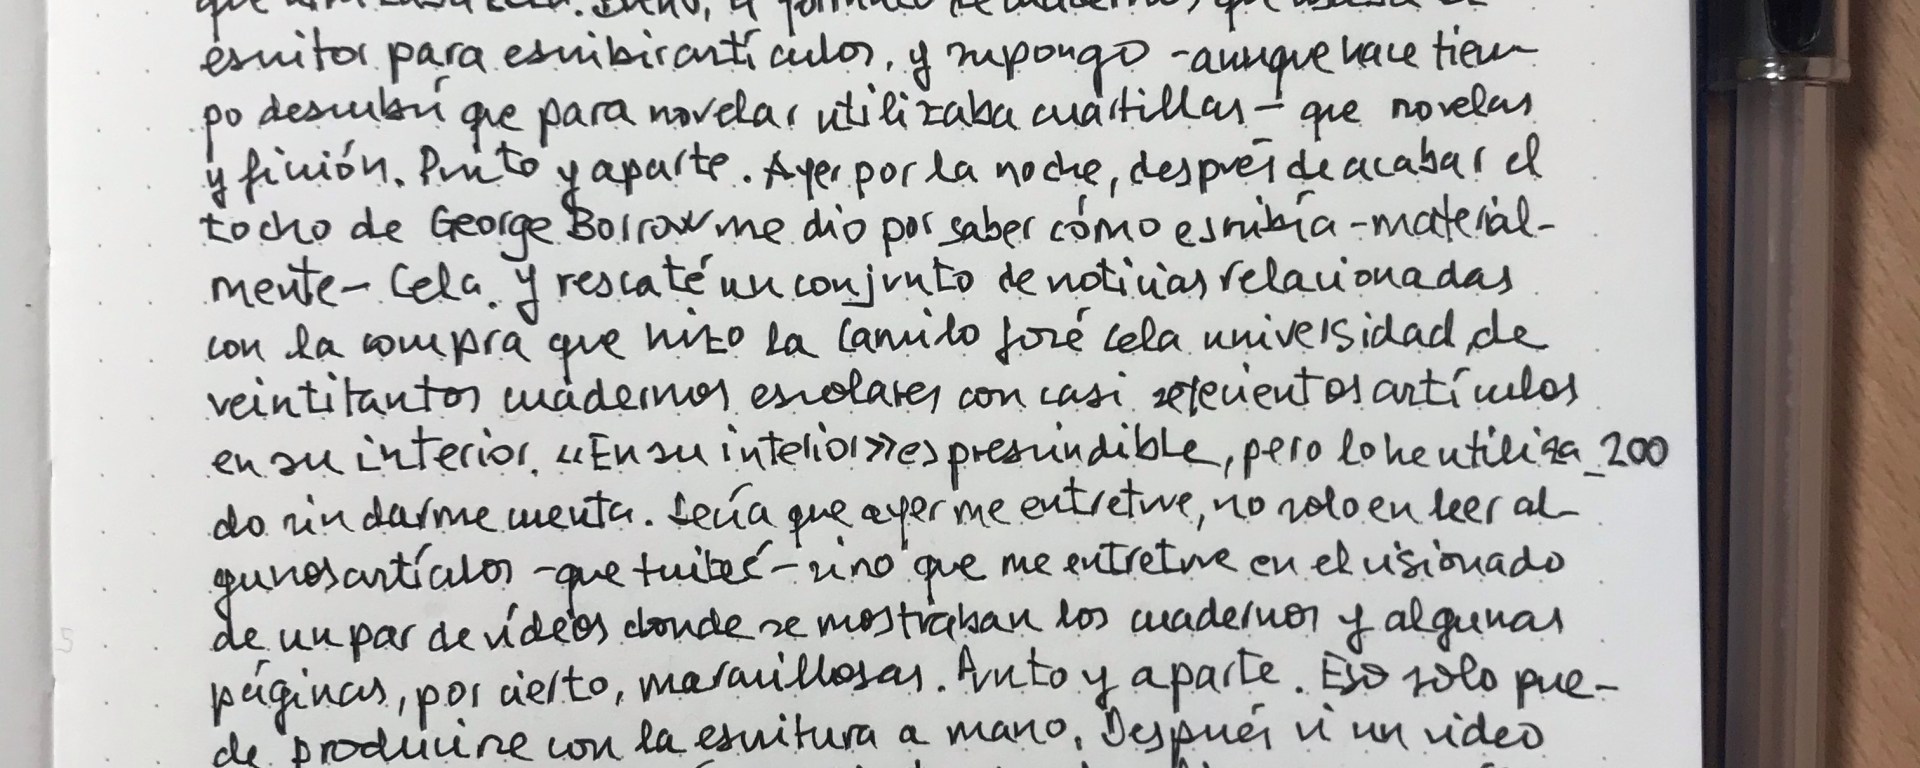 escritor para escribir artículos, y supongo -aunque hace tiem-
po descubrí que para novelar utilizaba cuartillas- que novelas
y ficción. Punto y aparte. Ayer por la noche, después de acabar el
tocho de George Borrow me dio por saber cómo escribía -material-
mente- Cela. Y rescaté un conjunto de noticias relacionadas
con la compra que hizo la Camilo José Cela universidad, de
veintitantos cuadernos escolares con casi setecientos artículos
en su interior. «En su interior» es prescindible, pero lo he utiliza_200
do sin darme cuenta. Decía que ayer me entretuve, no solo en leer al-
gunos artículos -que tuiteé- sino que me entretuve en el visionado
de un par de vídeos donde se mostraban los cuadernos y algunas
páginas, por cierto, maravillosas. Punto y aparte. Eso solo pue-
de producirse con la escritura a mano. Después vi un video